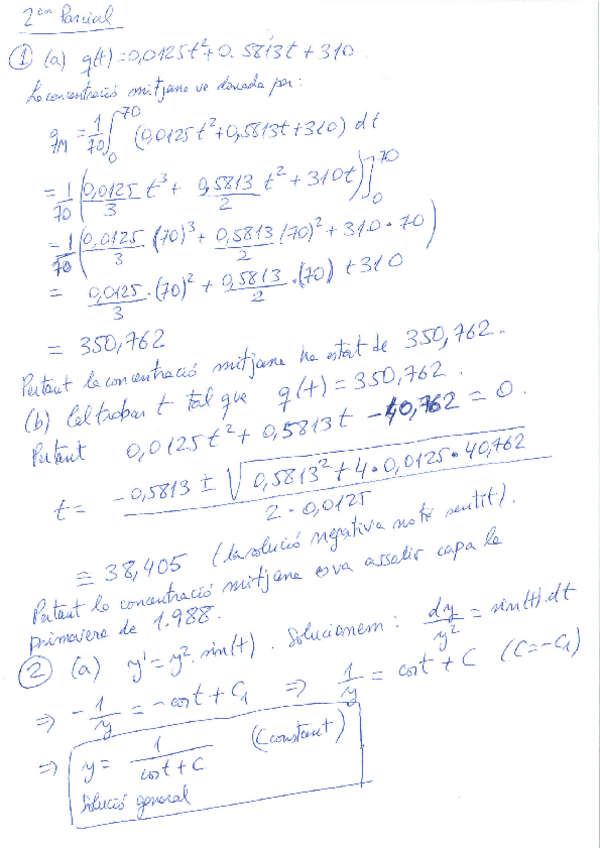 2on Parcial
① (a) q(t)=0,0125t²+0.5813t+310.
La concentració mitjana ve donada per:
q_M = 1/70 ∫₀⁷⁰ (0,0125t²+0,5813t+310) dt
= 1/70 (0,0125/3 t³ + 0,5813/2 t² + 310t)]₀⁷⁰
= 1/70 (0,0125/3 (70)³ + 0,5813/2 (70)² + 310·70)
= 0,0125/3 ·(70)² + 0,5813/2 ·(70) + 310
= 350,762
Pertant la concentració mitjana ha estat de 350,762.
(b) Cal trobar t tal que q(t) = 350,762.
Pertant 0,0125t² + 0,5813t - 40,762 = 0.
t = (-0,5813 ± √(0,5813² + 4·0,0125·40,762)) / (2·0,0125)
= 38,405 (la solució negativa no té sentit).
Pertant la concentració mitjana es va assolir capa la
primavera de 1.988.
② (a) y' = y²·sin(t). Solucionem: dy/y² = sin(t).dt
⇒ -1/y = -cost + C₁ ⇒ 1/y = cost + C (C=-C₁)
⇒ y = 1/(cost+C) (Constant)
Solució general